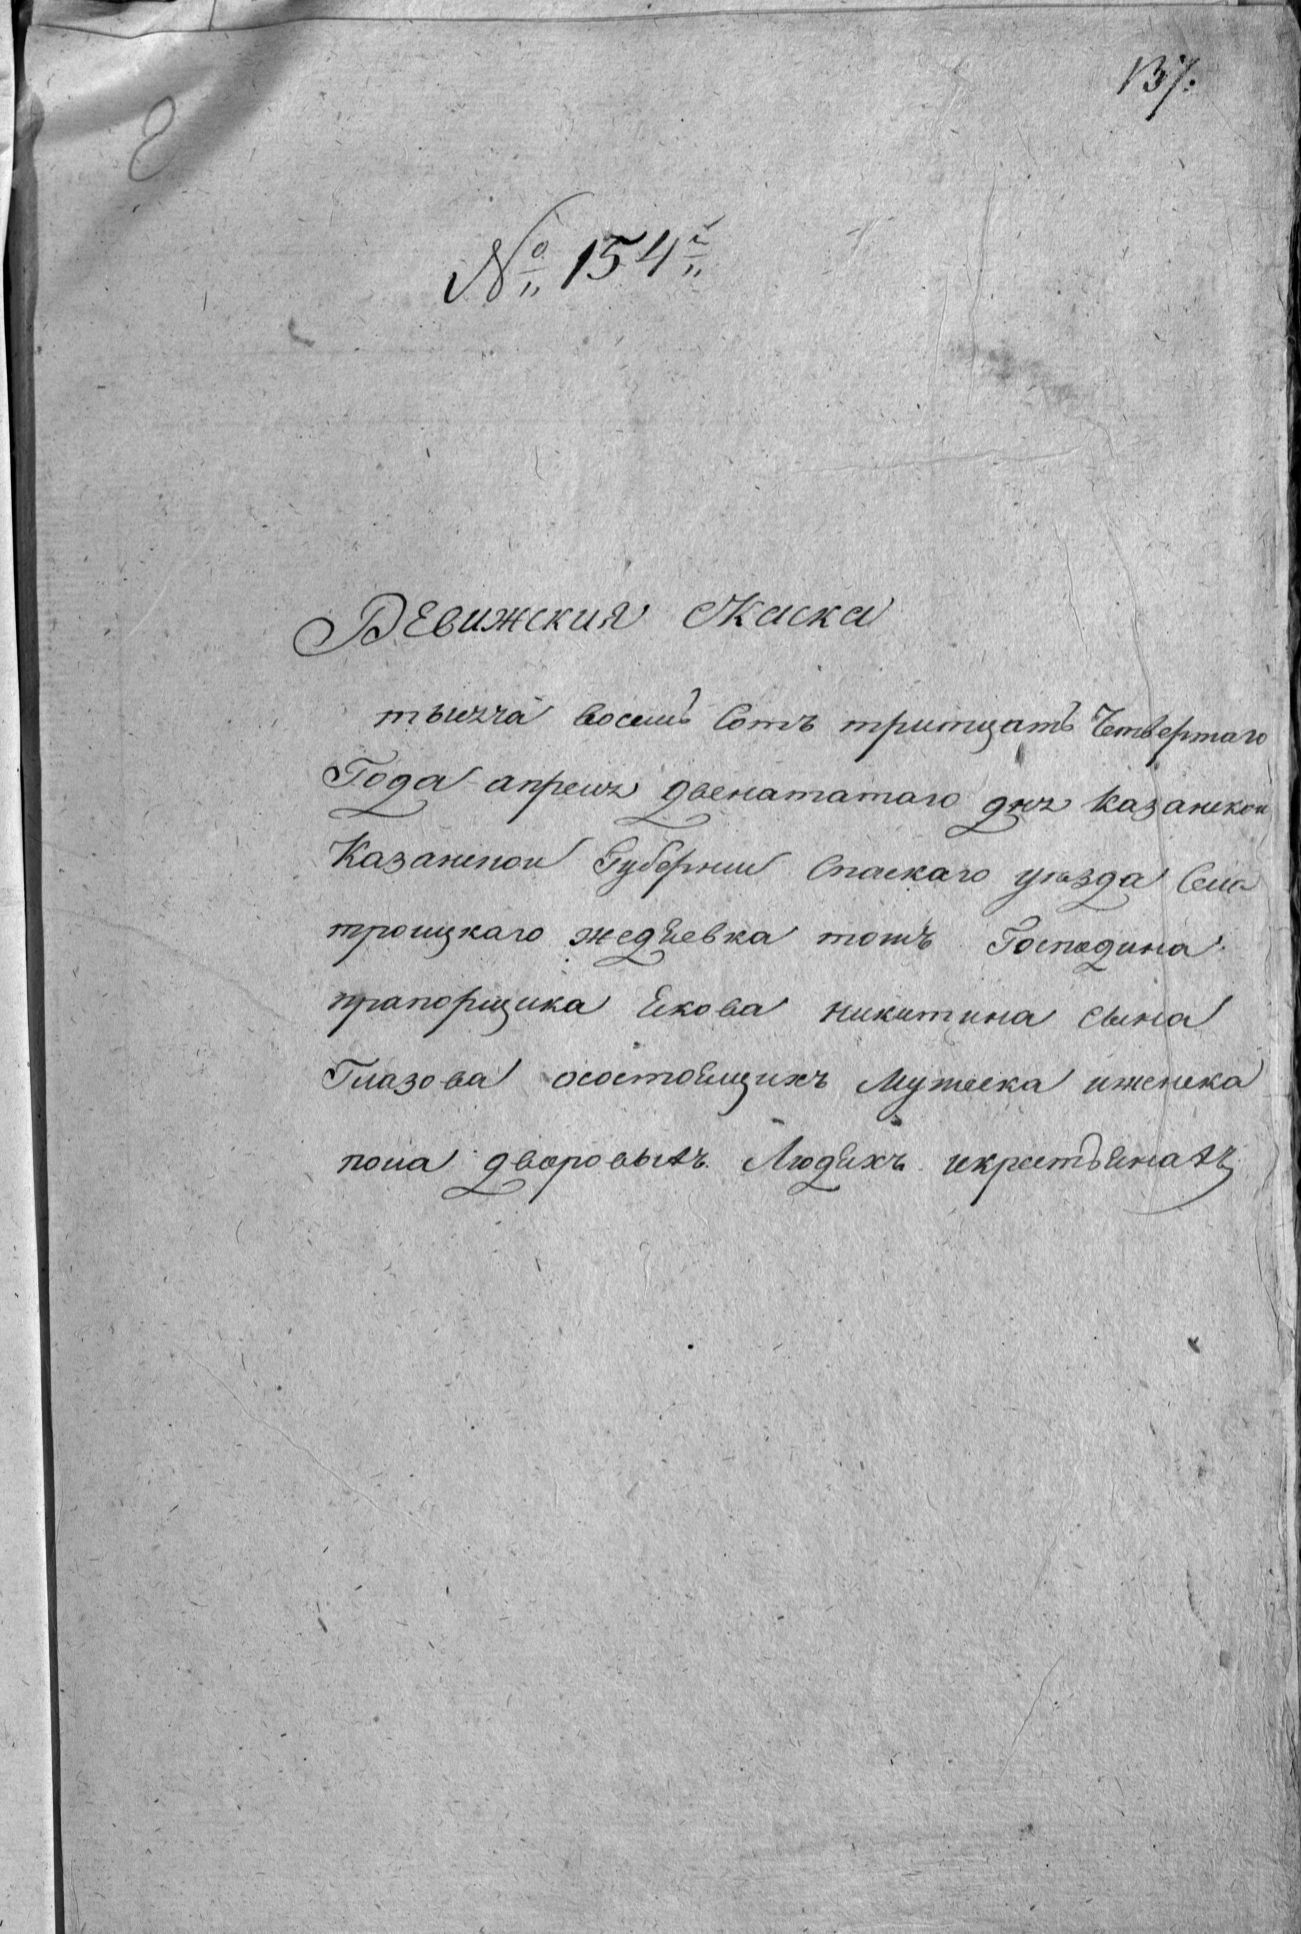 137.
8
№ 154й
Ревижския скаска
тысеча восемь Сотъ тритцать Четвертаго
Года апреля двенататаго дня Казанской
Казанской Губернии Спаскаго уезда Села
троицкаго жедяевка тошъ Господина
прапорщика Екова никитина сына
Глазова осостоящихъ Мужеска иженска
пола дворовыхъ Людяхъ икрестьянахъ